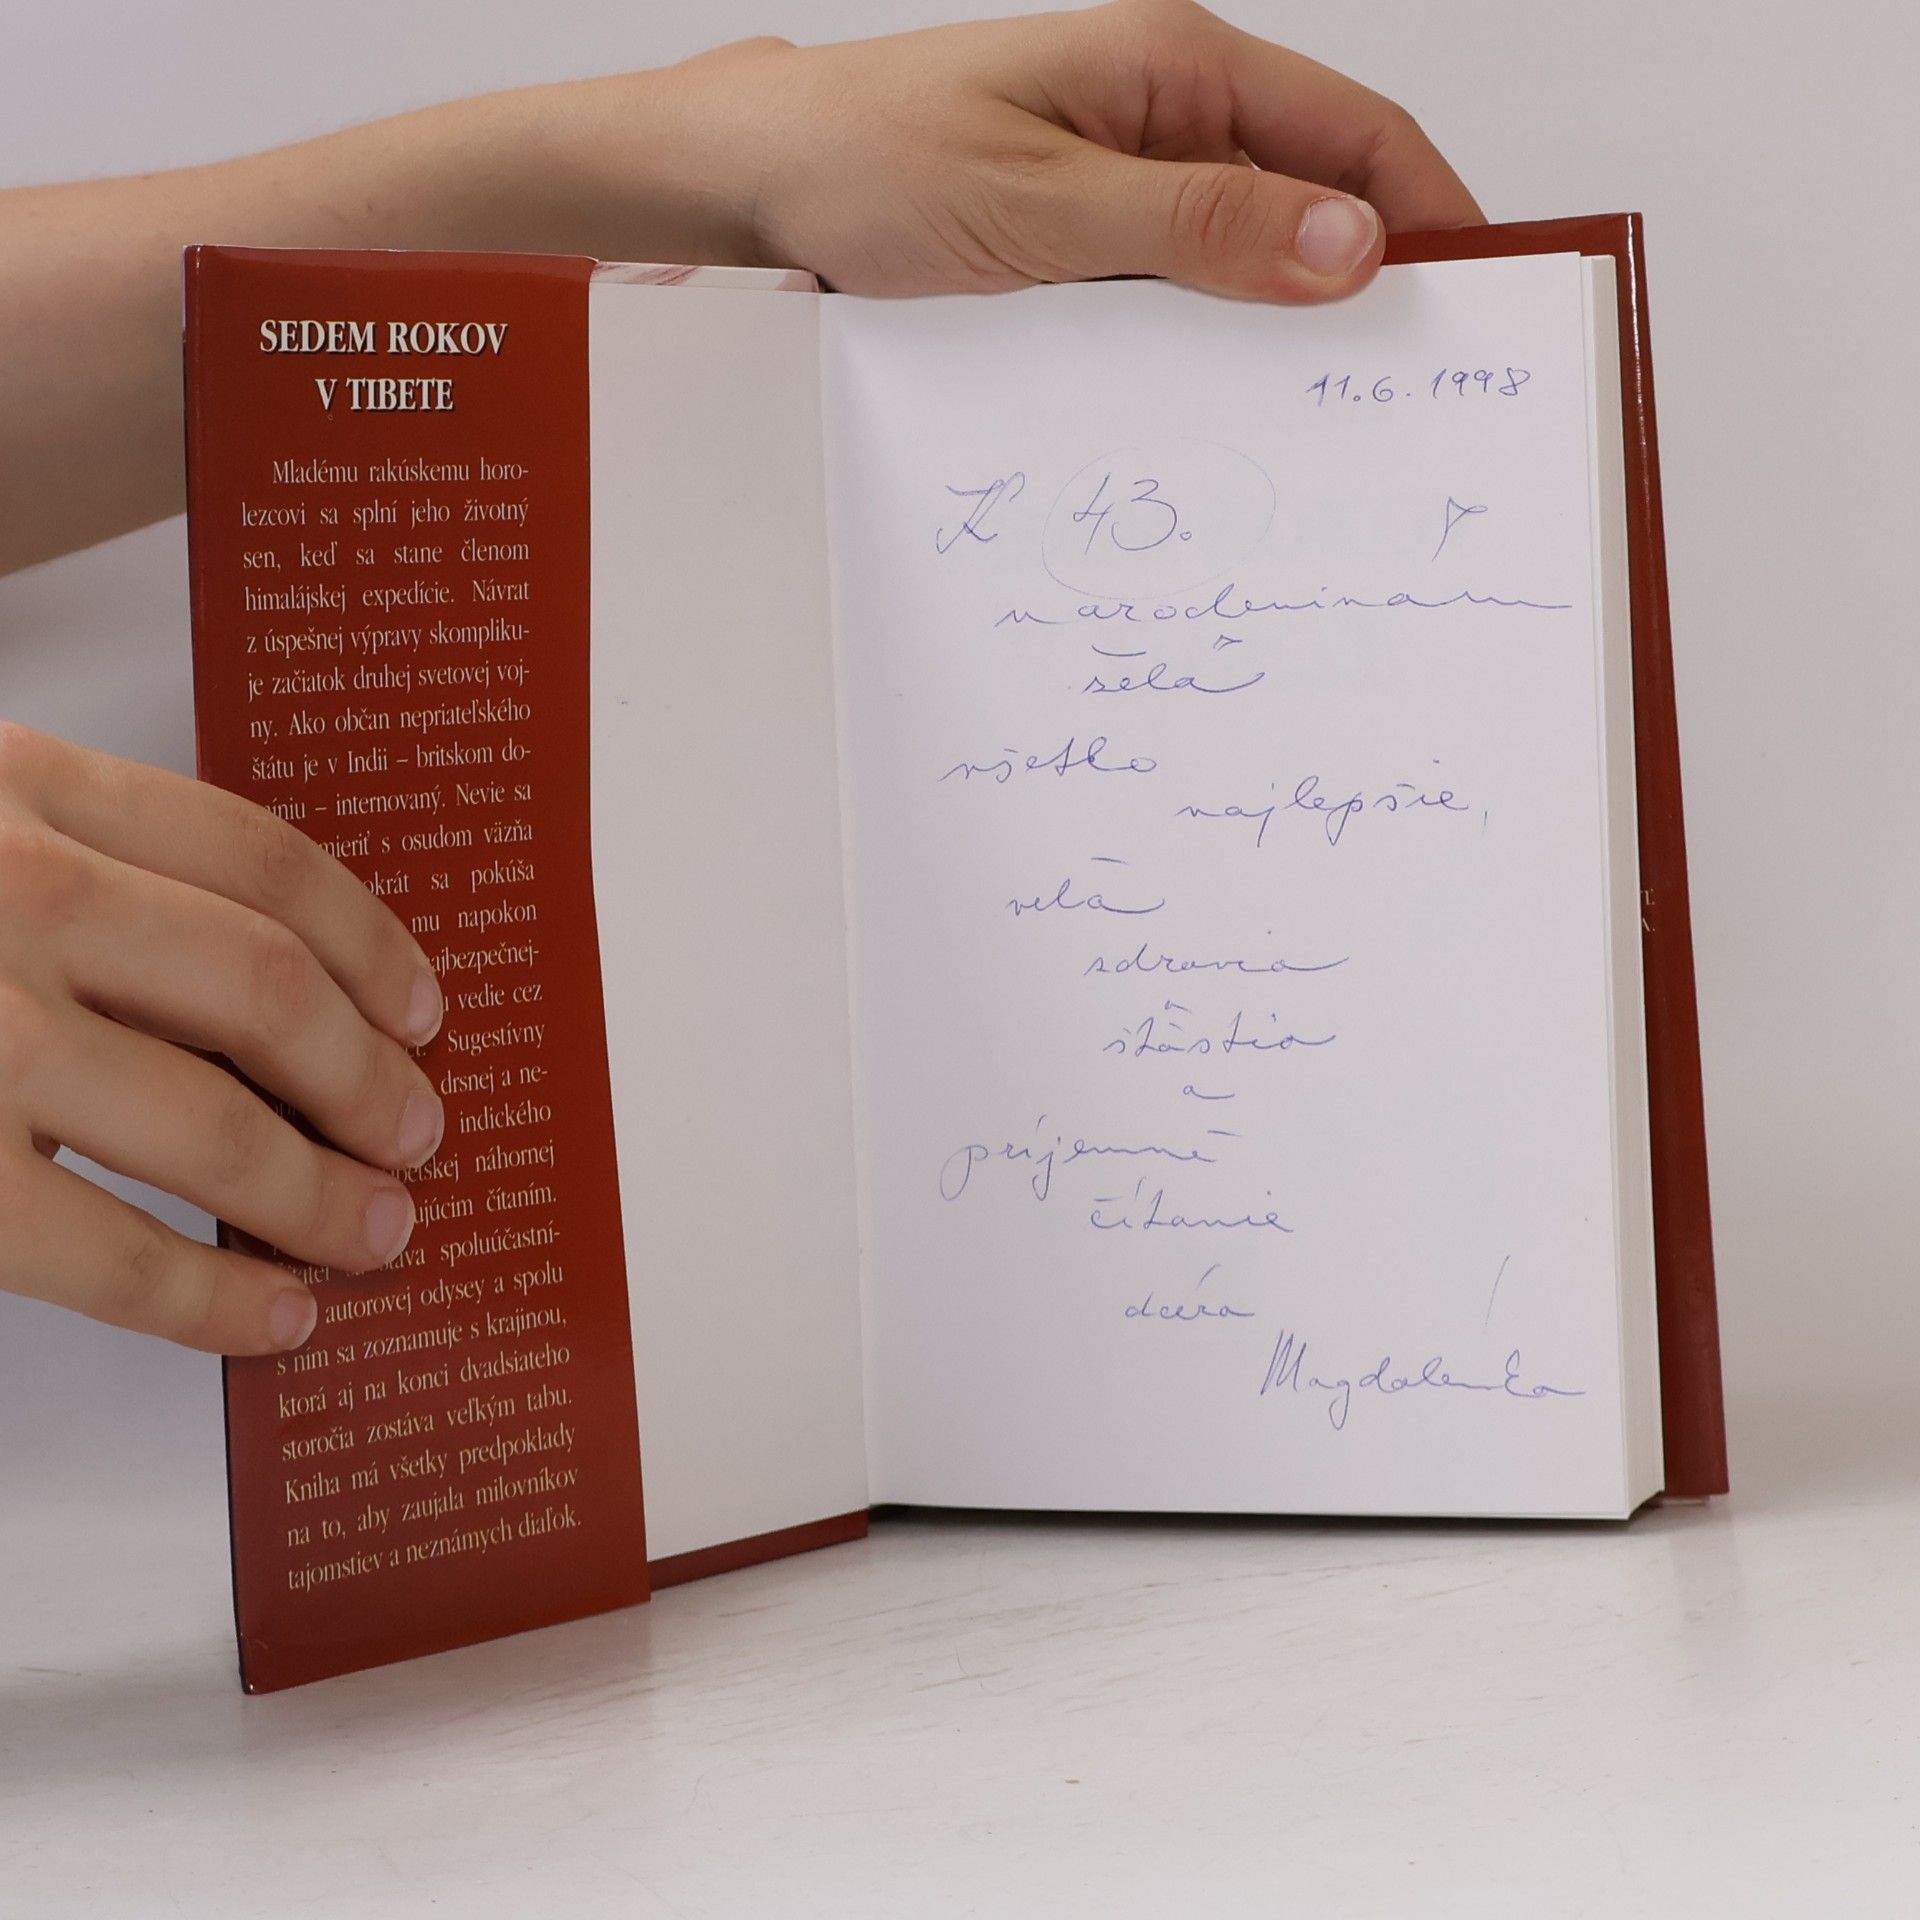 SEDEM ROKOV
V TIBETE
Mladému rakúskemu horo-
lezcovi sa splní jeho životný
sen, keď sa stane členom
himalájskej expedície. Návrat
z úspešnej výpravy skompliku-
je začiatok druhej svetovej voj-
ny. Ako občan nepriateľského
štátu je v Indii – britskom do-
míniu – internovaný. Nevie sa
mieriť s osudom väzňa
okrát sa pokúša
mu napokon
ajbezpečnej-
vedie cez
Sugestívny
drsnej a ne-
indického
betskej náhornej
ujúcim čítaním.
stáva spoluúčastní-
autorovej odysey a spolu
s ním sa zoznamuje s krajinou,
ktorá aj na konci dvadsiateho
storočia zostáva veľkým tabu.
Kniha má všetky predpoklady
na to, aby zaujala milovníkov
tajomstiev a neznámych diaľok.
11.6.1998
K 43.
narodeninám
želá
všetko
najlepšie,
veľa
zdravia
šťastia
a
príjemné
čítanie
dcéra
Magdalénka